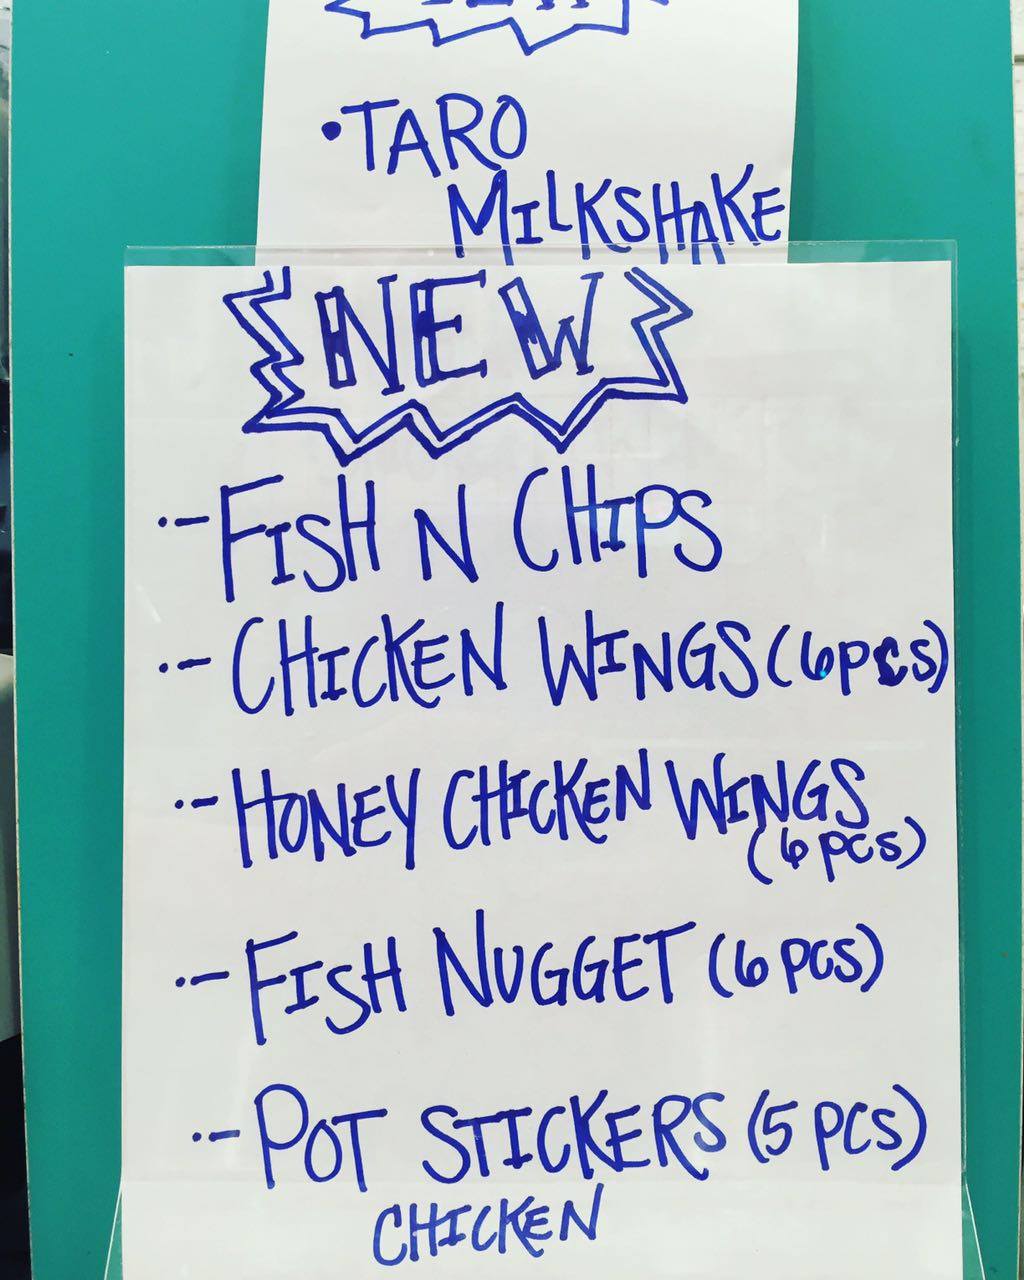 •TARO
MILKSHAKE
NEW
·-FISH N CHIPS
·-CHICKEN WINGS (6PCS)
·-HONEY CHICKEN WINGS
(6 PCS)
·-FISH NUGGET (6 PCS)
·-POT STICKERS (5 PCS)
CHICKEN